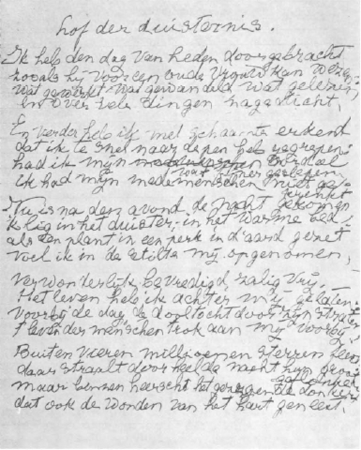 Lof der duisternis.
Ik heb den dag van heden doorgebracht
zooals hij voor een oude vrouw kan wezen,
wat gewerkt wat gewandeld wat gelezen,
en over vele dingen nagedacht,
En verder heb ik met schaamte erkend
dat ik te snel naar de pen heb gegrepen
had ik mijn
ik had mijn medemenschen niet
Nu is na dezen avond de nacht gekomen
ik lig in het duister, in het warme bed,
als een plant in een perk in d'aard gezet
voel ik in de stilte mij opgenomen,
verwonderlijk bevredigd, zalig vrij.
Het leven heb ik achter mij gelaten,
voorbij de dag, de dooltocht door zijn straten
't leven der menschen trok aan mij voorbij.
Buiten vieren millioenen sterren feest
daar straalt door heel de nacht hun
maar binnen heerscht het donker
dat ook de wonden van het hart geneest.